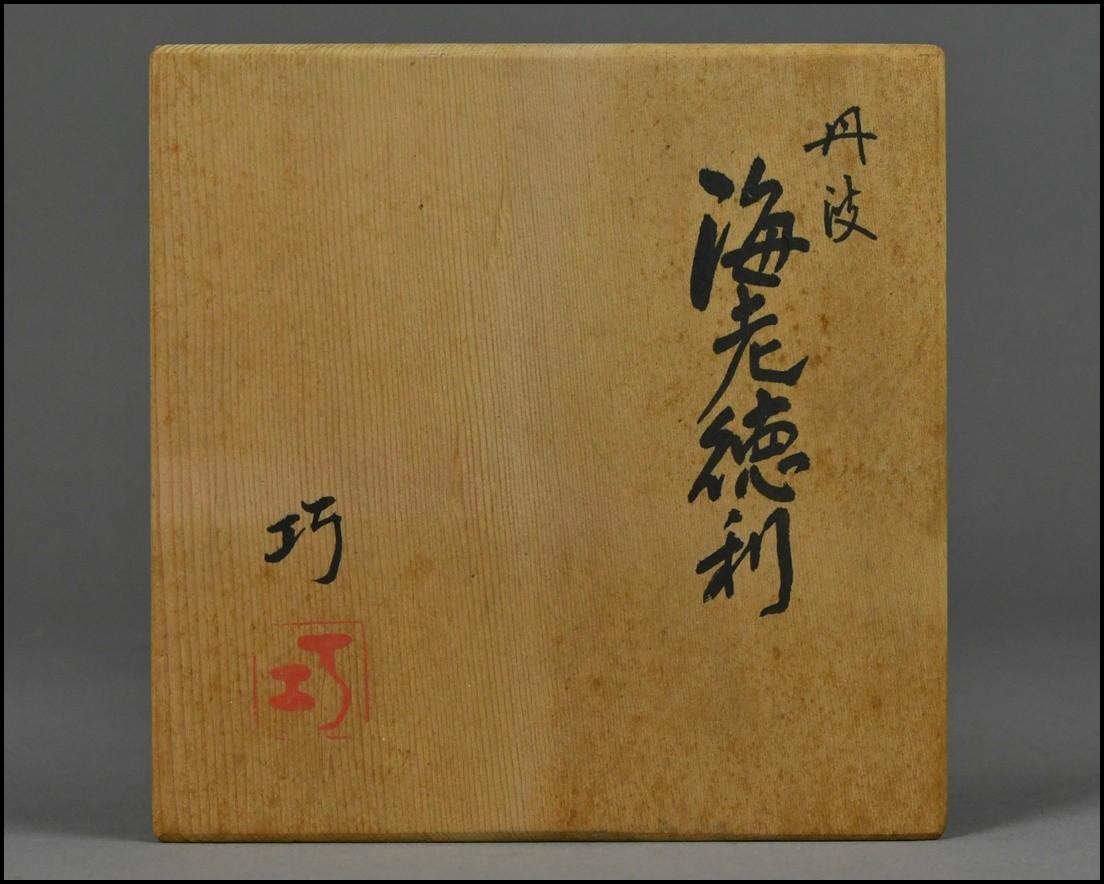 丹波
海老徳利
巧
巧